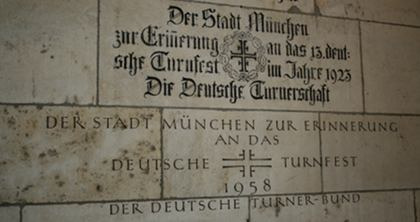 Der Stadt München
zur Erinnerung an das 13. deut:
sche Turnfest im Jahre 1923
Die Deutsche Turnerschaft
DER STADT MÜNCHEN ZUR ERINNERUNG
AN DAS
DEUTSCHE TURNFEST
1958
DER DEUTSCHE TURNER-BUND